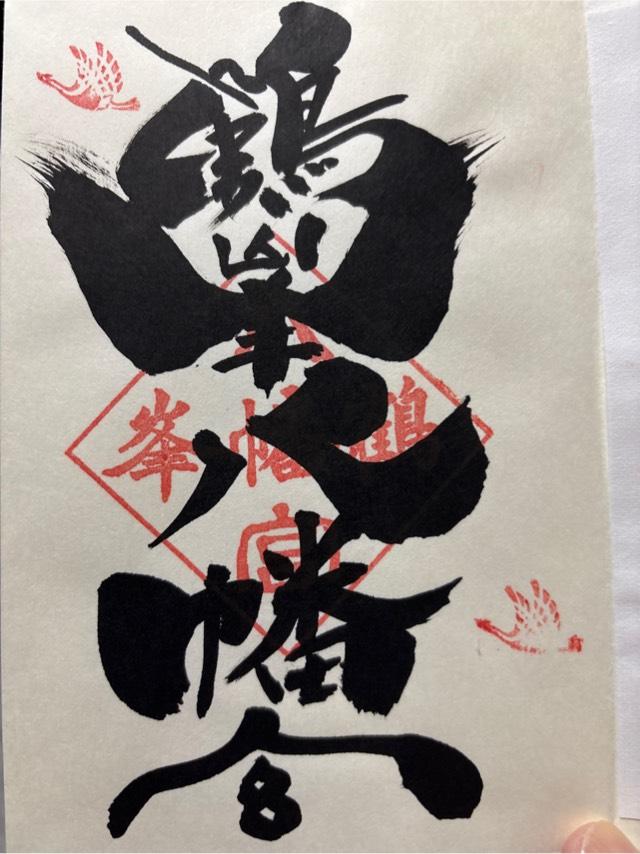 鶴峯八幡宮
鶴峯八幡宮